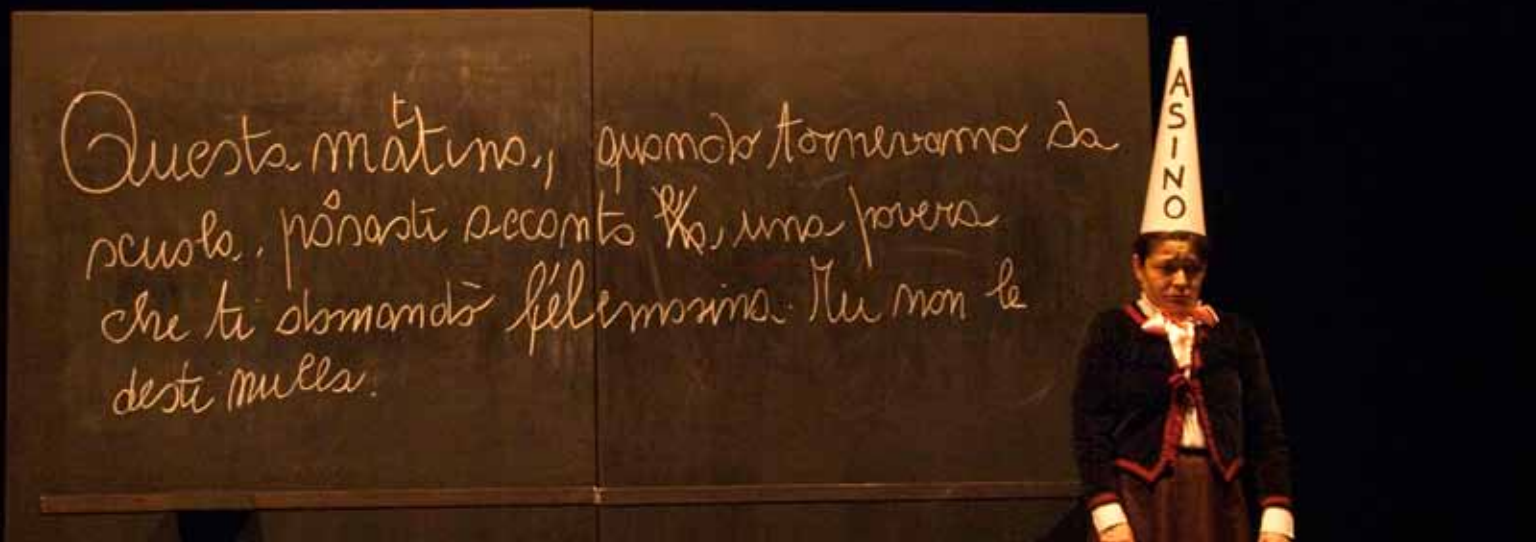 Questa mattina, quando tornevamo da
scuola, pâsasti accanto una povera
che ti domandò l'elemosina. Tu non le
desti nulla.
ASINO